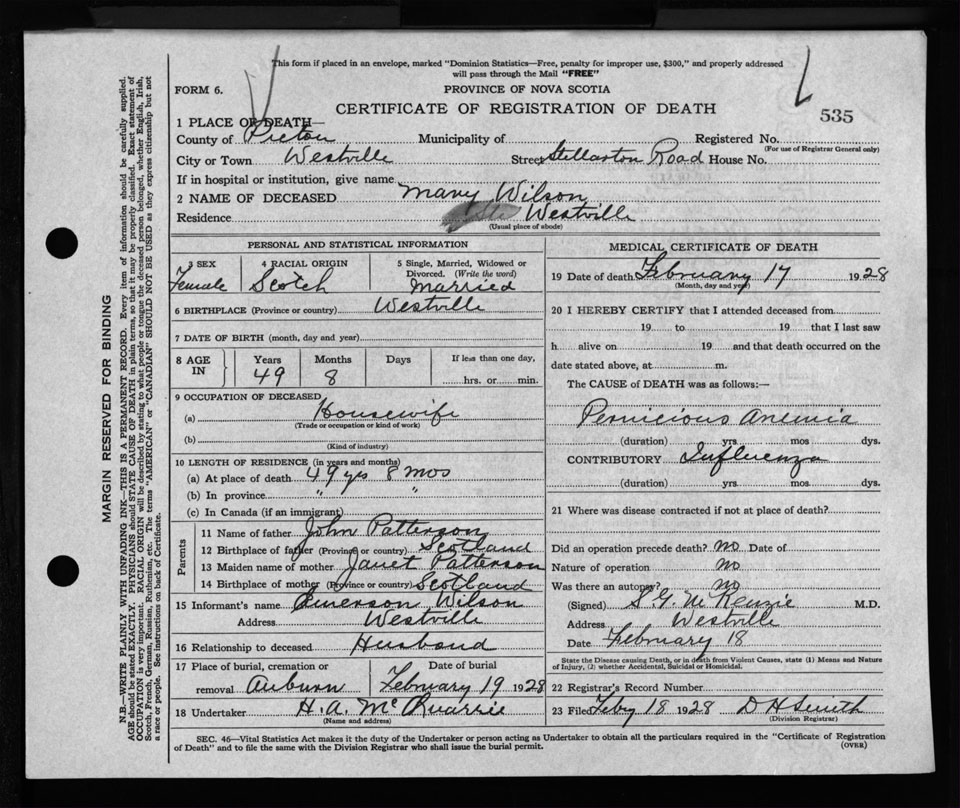 This form if placed in an envelope, marked "Dominion Statistics—Free, penalty for improper use, $300," and properly addressed
will pass through the Mail "FREE"
FORM 6.
PROVINCE OF NOVA SCOTIA
CERTIFICATE OF REGISTRATION OF DEATH
535
1 PLACE OF DEATH—
County of Pictou Municipality of Registered No.
(For use of Registrar General only)
City or Town Westville Street Stellarton Road House No.
If in hospital or institution, give name
2 NAME OF DECEASED Mary Wilson
Residence Westville
(Usual place of abode)
PERSONAL AND STATISTICAL INFORMATION
3 SEX 4 RACIAL ORIGIN 5 Single, Married, Widowed or
Divorced. (Write the word)
Female Scotch Married
6 BIRTHPLACE (Province or country) Westville
7 DATE OF BIRTH (month, day and year)
8 AGE IN Years Months Days If less than one day,
49 8 hrs. or min.
9 OCCUPATION OF DECEASED
(a) Housewife
(Trade or occupation or kind of work)
(b)
(Kind of industry)
10 LENGTH OF RESIDENCE (in years and months)
(a) At place of death 49 yrs 8 mos
(b) In province " "
(c) In Canada (if an immigrant)
Parents
11 Name of father John Patterson
12 Birthplace of father (Province or country) Scotland
13 Maiden name of mother Janet Patterson
14 Birthplace of mother (Province or country) Scotland
15 Informant's name Emerson Wilson
Address Westville
16 Relationship to deceased Husband
17 Place of burial, cremation or Date of burial
removal Auburn February 19 1928
18 Undertaker H.A. McQuarrie
(Name and address)
MEDICAL CERTIFICATE OF DEATH
19 Date of death February 17 1928
(Month, day and year)
20 I HEREBY CERTIFY that I attended deceased from
19 to 19 that I last saw
h alive on 19 and that death occurred on the
date stated above, at m.
The CAUSE of DEATH was as follows:—
Pernicious Anemia
(duration) yrs. mos dys.
CONTRIBUTORY Influenza
(duration) yrs. mos. dys.
21 Where was disease contracted if not at place of death?
Did an operation precede death? no Date of
Nature of operation no
Was there an autopsy? no
(Signed) S.G. McKenzie M.D.
Address Westville
Date February 18
State the Disease causing Death, or in death from Violent Causes, state (1) Means and Nature
of Injury, (2) whether Accidental, Suicidal or Homicidal.
22 Registrar's Record Number
23 Filed Feby 18 1928 D H Smith
(Division Registrar)
SEC. 46—Vital Statistics Act makes it the duty of the Undertaker or person acting as Undertaker to obtain all the particulars required in the "Certificate of Registration
of Death" and to file the same with the Division Registrar who shall issue the burial permit.
(OVER)
MARGIN RESERVED FOR BINDING
N.B.—WRITE PLAINLY WITH UNFADING INK—THIS IS A PERMANENT RECORD. Every item of information should be carefully supplied.
AGE should be stated EXACTLY. PHYSICIANS should STATE CAUSE OF DEATH in plain terms, so that it may be properly classified. Exact statement of
OCCUPATION is very important. RACIAL ORIGIN will be described by stating to what people or tongue the deceased person belonged, whether English, Irish,
Scotch, French, German, Russian, Ruthenian, etc. The terms "AMERICAN" or "CANADIAN" SHOULD NOT BE USED as they express citizenship but not
a race or people. See instructions on back of Certificate.